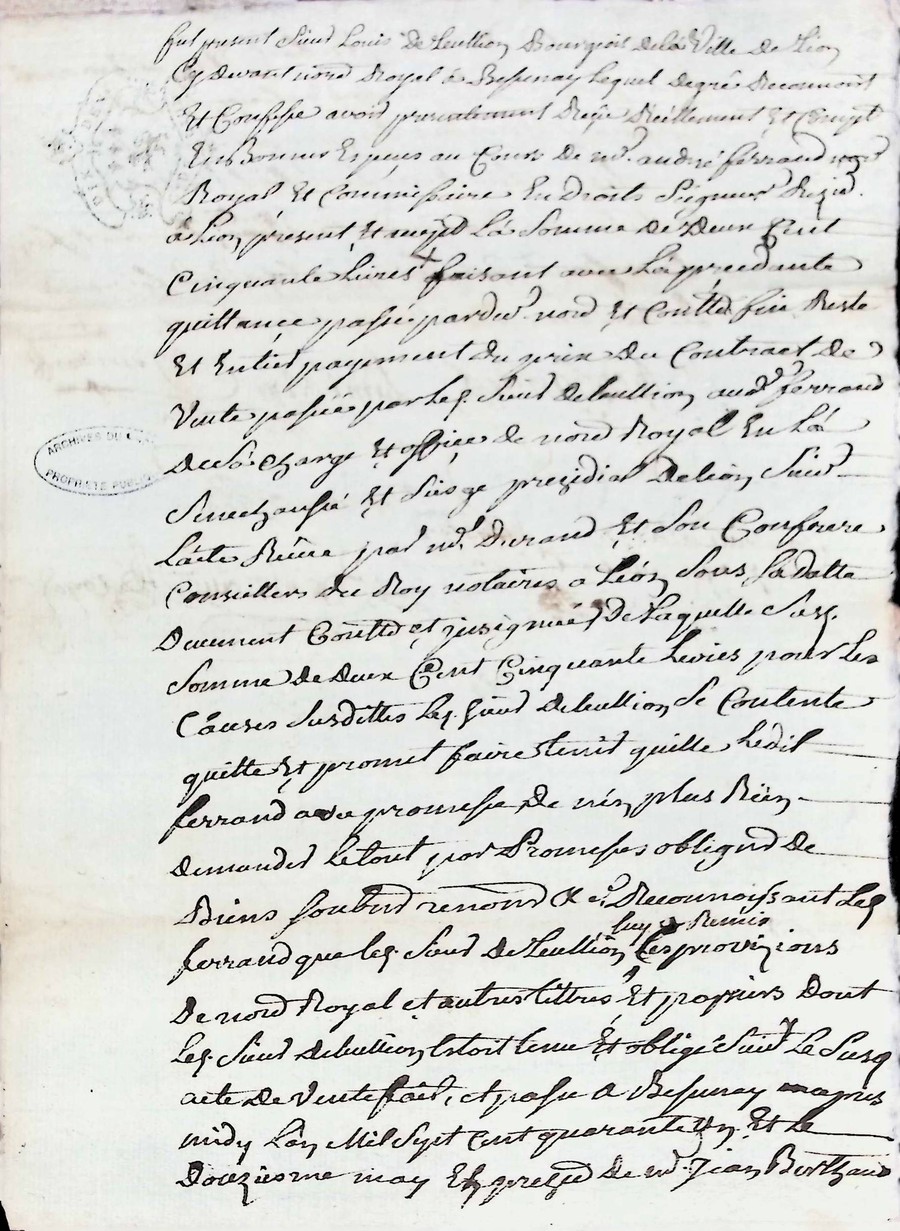 fut present Sieur Louis Deleullion Bourgeois de la Ville de Lion
Cy devant nord Royal à Bessenay lequel de gré Reconnoit
Et Confesse avoir presentement Reçu Réellement Et Compt
En Bonnes Espèces au Cours de mr. andré ferrand nore
Royal Et Commissaire En Droits Seigneur Resid.
à Lion present Et accept La Somme de Deux Cent
Cinquante Livres faisant avec La precedante
quittance passée pardt. nord Et Conttlée fin Reste
Et Entier payement du prix du Contract de
Vente passée par Led. Sieur Deleullion audt. ferrand
de sa charge Et office de nord Royal En La
Senechaussé Et Siège presidial de Lion Suivt
L'acte Reçue par mes. Durand Et Son Confrere
Conseillers du Roy notaires a Lion Sous Sa datte
Duement Conttlé et insignuée, De laquelle Susd.
Somme de Deux Cent Cinquante Livres pour les
Causes Susdittes Led. Sieur Deleullion Se Contente
quitte Et promet faire tenir quitte Ledit
ferrand avec promesse de n'en plus Rien
demander Le tout par Promesses obligond de
Biens Soubmd renond & ca. Reconnoissant Led
ferrand que led. Sieur Deleullion luy a Remis Ces provizions
De nord Royal et autres tittres Et papiers Dont
Led. Sieur Deleullion Estoit tenu Et obligé Suivt Le Susd
acte de Vente fait, et passé a Bessenay apres
midy L'an Mil Sept Cent quarante un Et Le
Douziesme may En presed De mr. Jean Berthaud
ARCHIVES DU
PROPRIÉTÉ PUBLIQUE